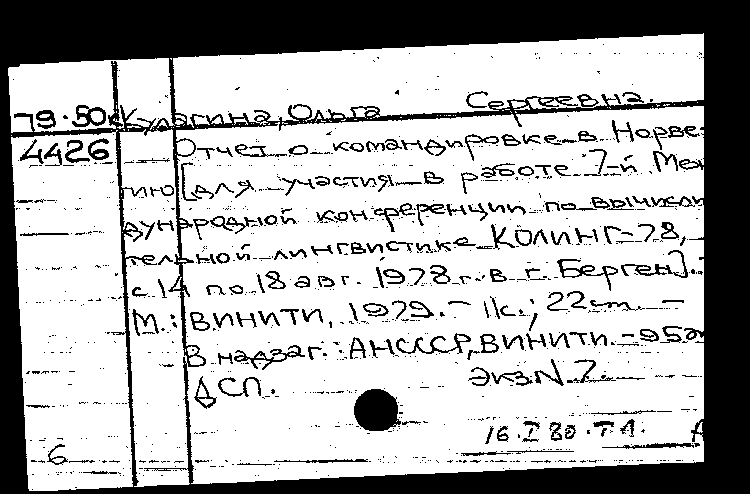 79-50к Кулагина, Ольга Сергеевна.
4426 Отчет о командировке в Норве-
гию [для участия в работе 7-й Меж
дународной конференции по вычисли
тельной лингвистике КОЛИНГ-78,
с 14 по 18 авг. 1978 г. в г. Берген].-
М.: ВИНИТИ, 1979. - 11с.; 22см. -
В надзаг.: АНСССР, ВИНИТИ. - 95э
ДСП. Экз.N 7.
16.I 80. Т-1. А
6